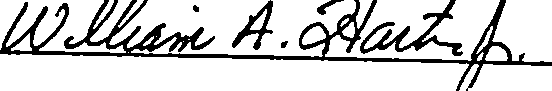 William A. Hart Jr.